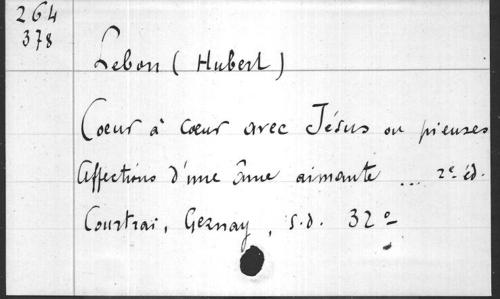 264
378
Lebon (Hubert)
Coeur à coeur avec Jésus ou pieuses
Affections d'une âme aimante ... 2e éd.
Courtrai, Gernay, s.d. 32°